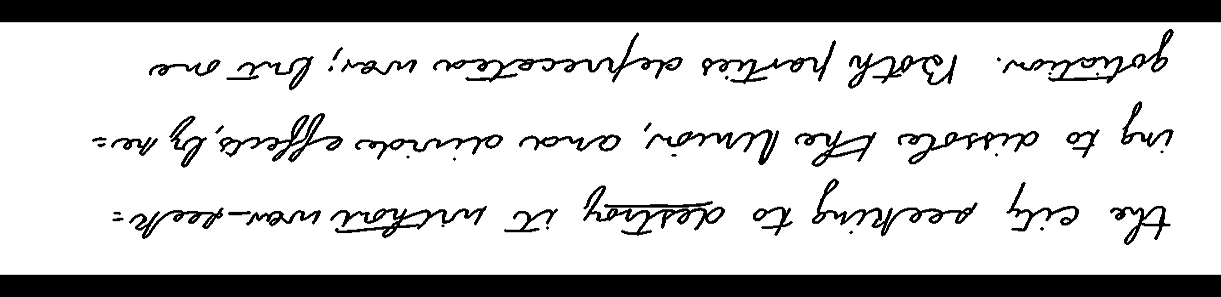 the city seeking to destroy it without war – seek=
ing to dissole the Union, and divide effects, by ne=
gotiation. Both parties deprecated war; but one